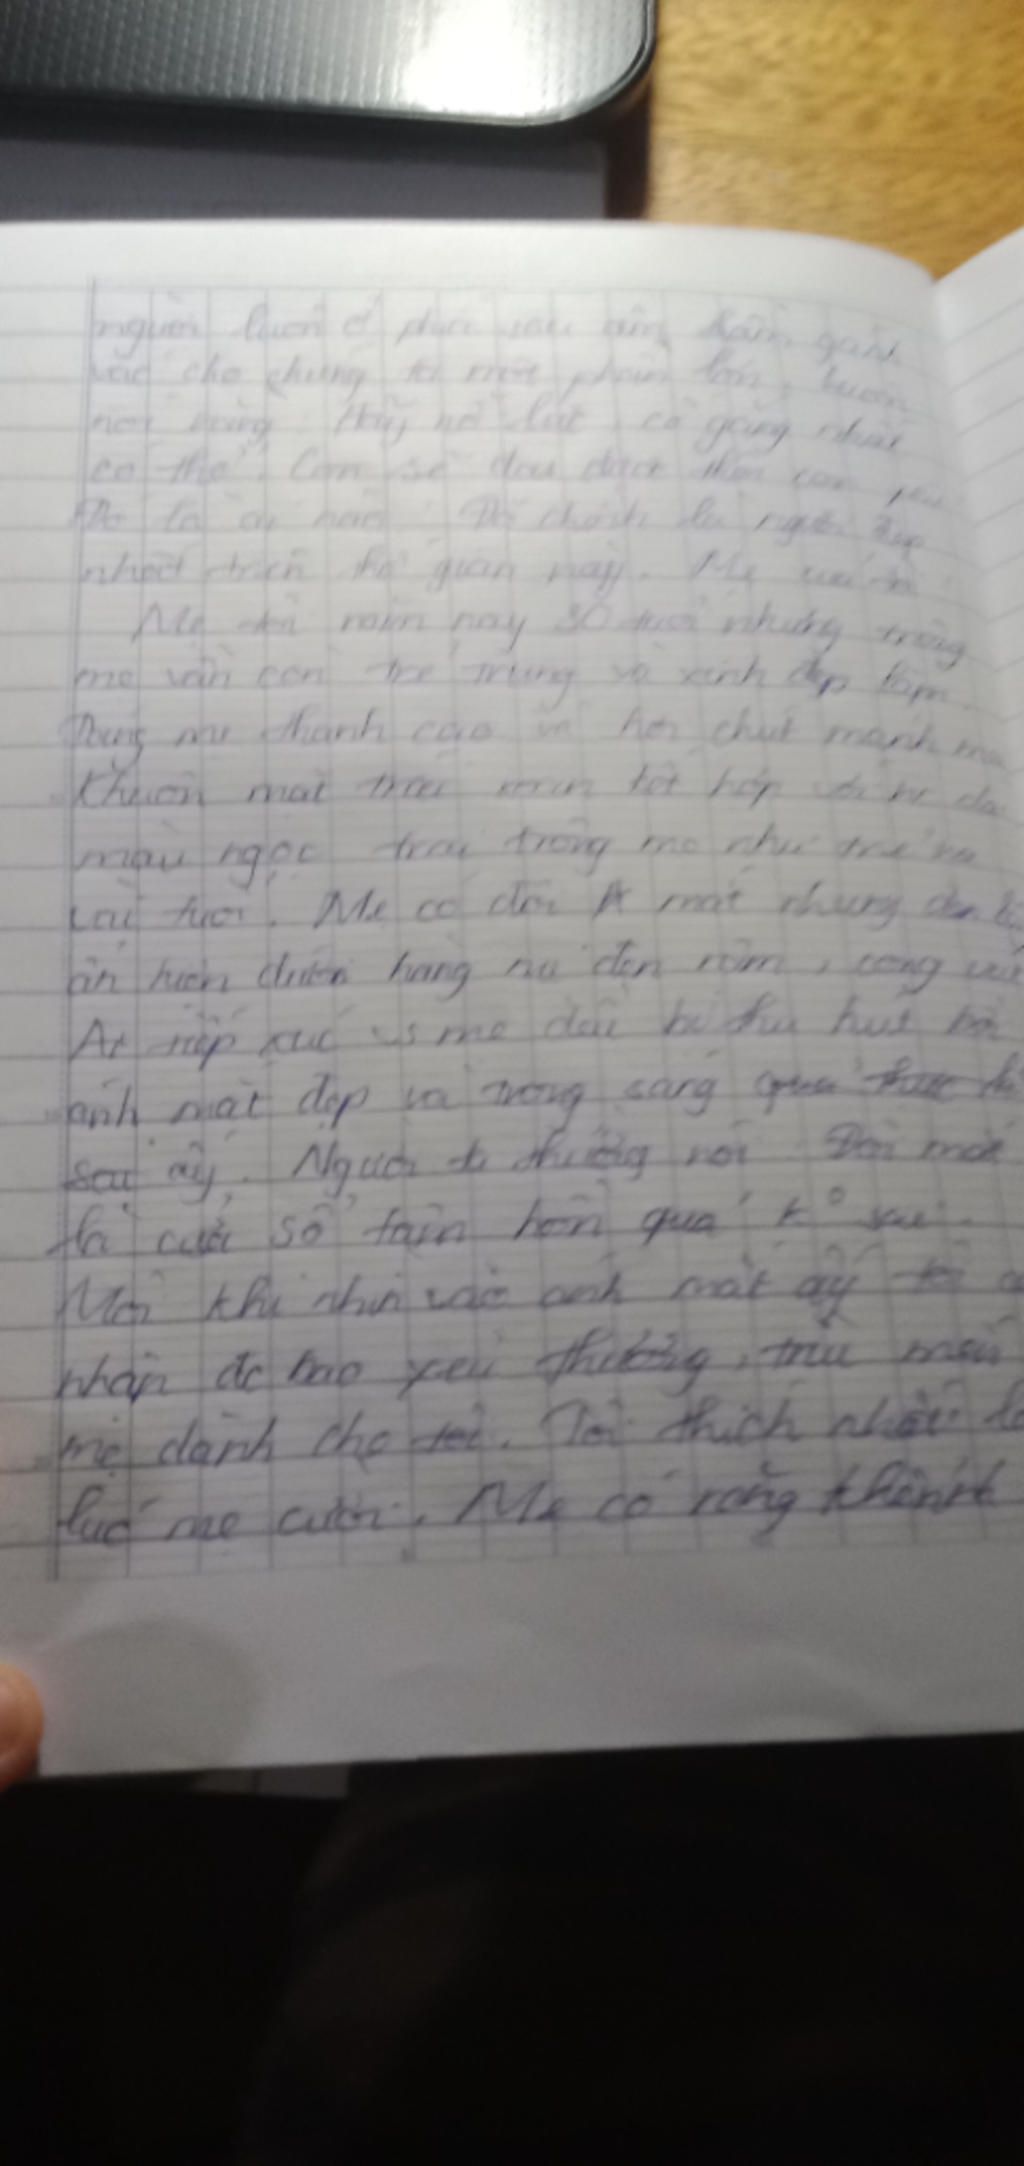 người luôn ở phía sau âm thầm gánh
vác cho chúng tôi một phần lớn, luôn
nói rằng: Hãy nỗ lực, cố gắng nhất
có thể. Con sẽ đạt được
Đó là ai nào? Đó chính là người đẹp
nhất trên thế gian này. Mẹ của tôi
Mẹ tôi năm nay 30 tuổi nhưng trông
mẹ vẫn còn trẻ trung và xinh đẹp lắm.
Dáng mẹ thanh cao và hơi chút mảnh mai
Khuôn mặt trái xoan kết hợp với
màu ngọc trai trông mẹ như trẻ ra
vài tuổi. Mẹ có đôi mắt nhung đen
ẩn hiện dưới hàng mi đen rậm, cong vút
Ai tiếp xúc vs mẹ đều bị thu hút bởi
ánh mắt đẹp và trong sáng
sau ấy. Người ta thường nói Đôi mắt
là cửa sổ tâm hồn quả k° sai.
Mỗi khi nhìn vào ánh mắt ấy tôi
nhận đc bao yêu thương, trìu mến
mẹ dành cho tôi. Tôi thích nhất là
lúc mẹ cười. Mẹ có răng khểnh